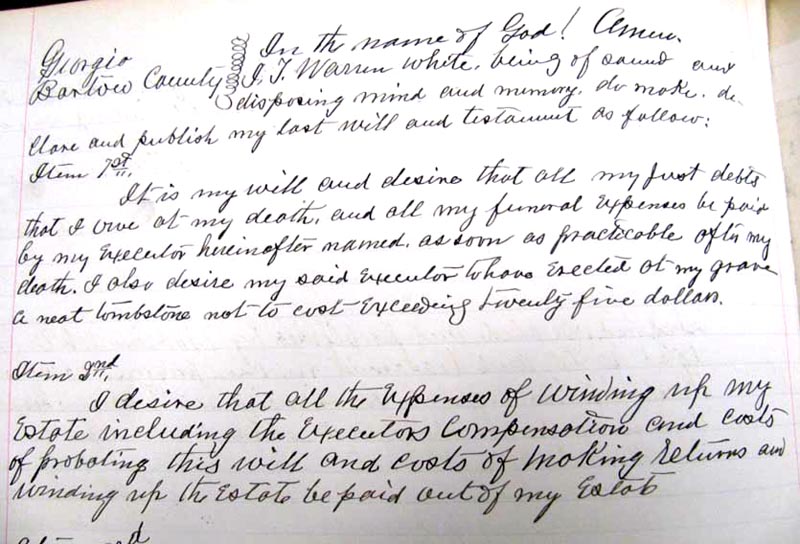 Georgia
Bartow County
In th name of God! Amen.
I, T. Warren White, being of sound and
disposing mind and memory, do make, de-
clare and publish my last will and testament as follow:
Item 1st.
It is my will and desire that all my just debts
that I owe at my death, and all my funeral expenses be paid
by my Executor hereinafter named, as soon as practicable after my
death. I also desire my said Executor to have erected at my grave
a neat tombstone not to cost exceeding twenty five dollars.
Item 2nd.
I desire that all the expenses of winding up my
Estate including the Executors compensation and costs
of probating this will and costs of making returns and
winding up the Estate be paid out of my Estate